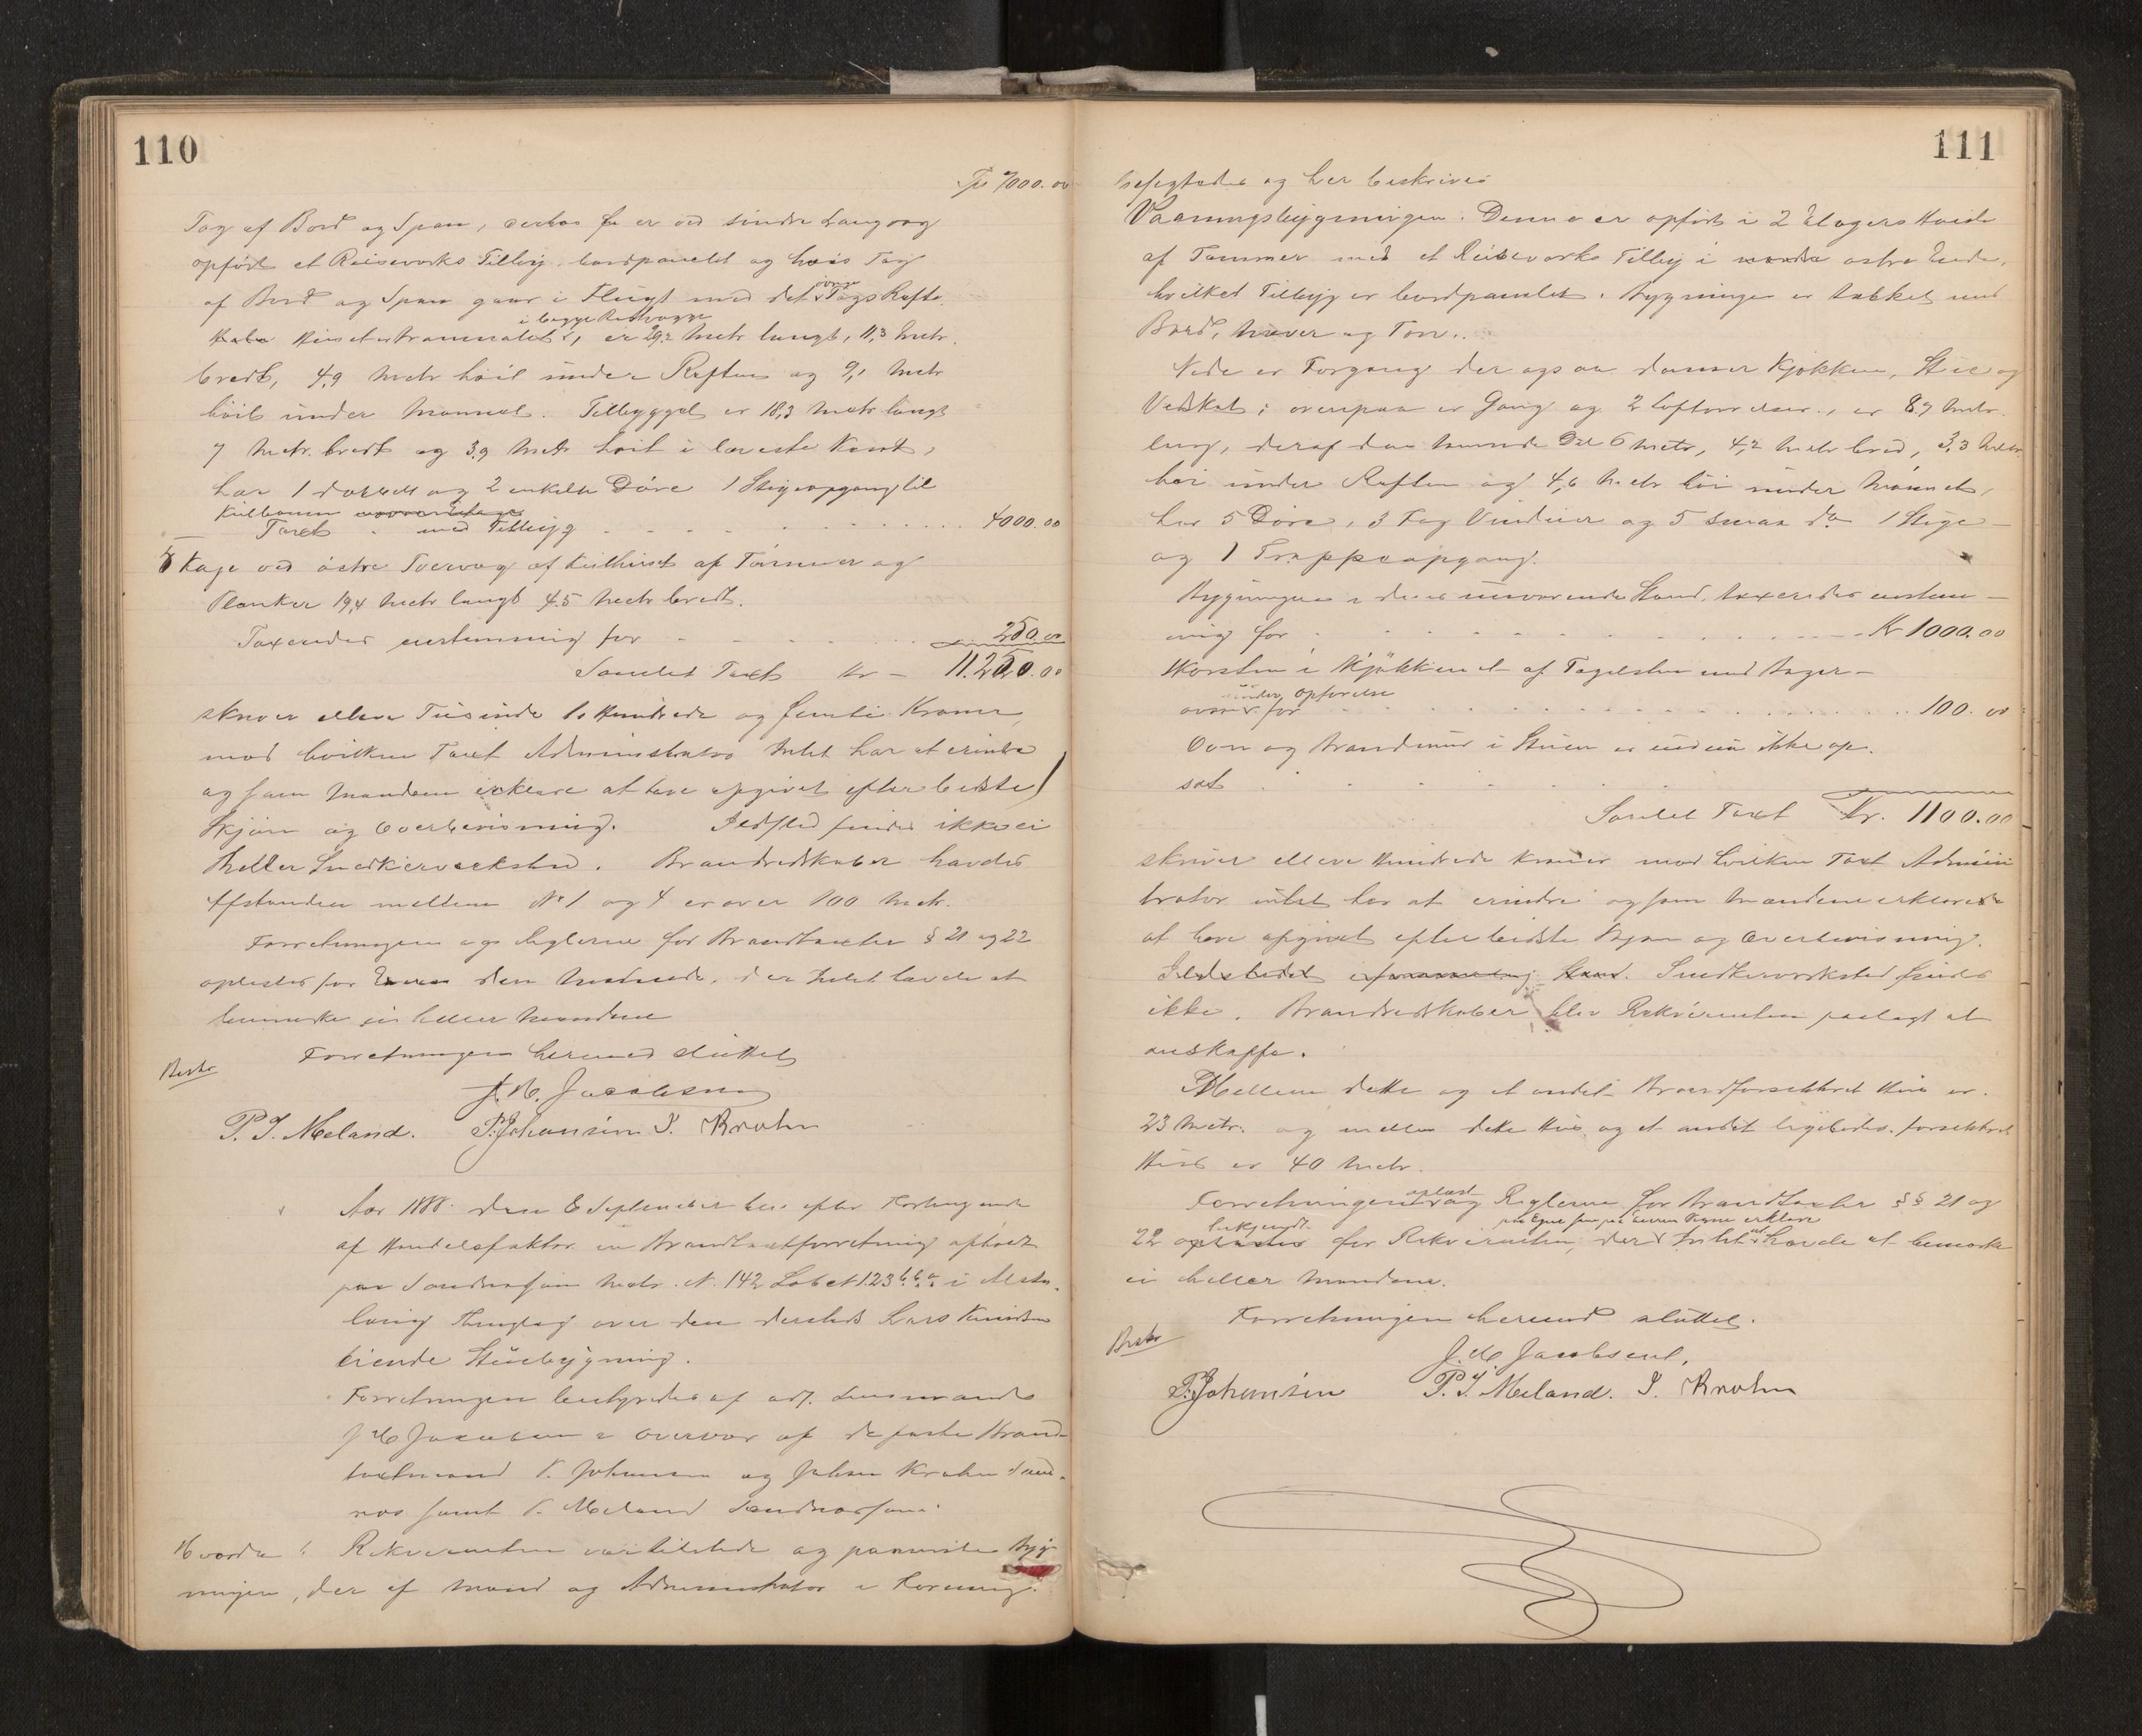 110
Tp 7000.00
Tag af Bord og Spon, derhos er ved søndre Langvæg
opført et Reisverks Tilbyg bordpanelet og hvis Tag
af Bord og Spon gaar i Flugt med det øvrige Tags Rafte.
i begge
Huset er 29,2 Metr langt, 11,3 Metr.
bredt, 4,9 Metr høit under Raften og 9,1 Metr
høit under Mønnet. Tilbygget er 18,3 Metr langt
7 Metr. bredt og 3,9 Metr høit i laveste Kant,
har 1 dobbelt og 2 enkelte Døre 1 Stigeopgang til
Taxt med Tilbyg 4000.00
Kaje ved østre Tvervæg af af Tømmer og
Planker 19,4 Metr langt 4,5 Metr bredt.
Taxeredes enstemmig for 250.00
Samlet Taxt Kr 11.250.00
skriver elleve Tusinde to Hundrede og femti Kroner
mod hvilken Taxt Administrator Intet har at erindre
og som Mændene erklære at have afgivet efter bedste
Skjøn og Overbevisning. Ildsted findes ikke ei
heller Snedkerverksted. Brandredskaber havdes
Afstanden mellem No 1 og 4 er over 100 Metr.
Forretningen og Reglerne for Brandtaxter § 21 og 22
oplæstes for den Mødende, der Intet havde at
bemærke ei heller Mændene
Forretningen hermed sluttet
J. M. Jacobsen
P. J. Meland. P. Johansen J. Krohn
Aar 1888 den 8 September blev efter Forlangende
af Handelsfaktor en Brandtaxtforretning afholdt
paa Sandnæsøen Matr. N. 142 Løbet 123 i Alsta-
houg Thinglag over den dersteds Lars Knudsen
eiende Stuebygning.
Forretningen bestyredes af adj. Lensmand
J M Jacobsen i Overvær af de faste Brand-
taxtmænd P. Johansen og Johan Krohn Sand-
næs samt P. Meland Sandnæsøen.
Hvorda Rekvirenten var tilstede og paaviste Byg-
ningen, der af Mænd og Administrator i Forening
111
besigtedes og her beskrives
Vaaningsbygningen. Denne er opført i 2 Etagers Høide
af Tømmer med et Reisverks Tilbyg i østre Ende,
hvilket Tilbyg er bordpanelet. Bygningen er tækket med
Bord, Næver og Torv.
Nede er Forgang der ogsaa danner Kjøkken, Stue og
Vedskot; ovenpaa er Gang og 2 Loftværelser, er 8,7 Metr.
lang, deraf den Del 6 Metr, 4,2 Metr bred, 3,3 Metr
høi under Raften og 4,6 Metr høi under Mønnet,
har 5 Døre, 3 Fag Vinduer og 5 smaa do 1 Stige-
og 1 Trappeopgang.
Bygningen i dens nuværende Stand taxeredes enstem-
mig for Kr 1000.00
Skorsten i Kjøkkenet af Tegelsten med Bager-
under Opførelse
ovn for 100.00
Ovn og Brandmur i Stuen er endnu ikke op-
sat
Samlet Taxt Kr. 1100.00
skriver elleve Hundrede Kroner mod hvilken Taxt Admini
trator intet har at erindre og som Mændene erklærede
at have afgivet efter bedste Skjøn og Overbevisning.
Ildstedet Snedkerverksted findes
ikke. Brandredskaber blev Rekvirenten paalagt at
anskaffe.
Mellem dette og et andet Brandforsikkret Hus er
23 Metr. og mellem dette Hus og et andet ligeledes forsikkret
Hus er 40 Metr.
Forretningen oplæst og Reglerne for Brandtaxter §§ 21 og
bekjendt paa Egne som paa Eierens Vegne erklære
22 for Rekvirenten, der Intet at havde at bemærke
ei heller Mændene.
Forretningen hermed sluttet.
J. M. Jacobsen.
P. Johansen P. J. Meland. J. Krohn